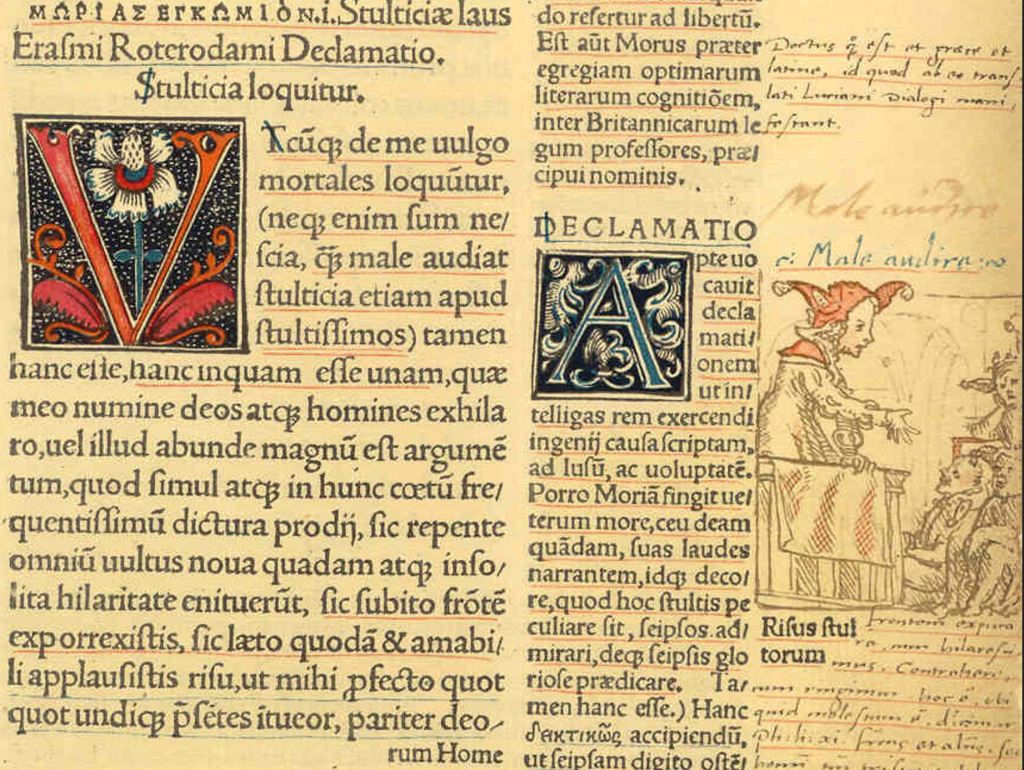 ΜΩΡΙΑΣ ΕΓΚΩΜΙΟΝ.i. Stulticiæ laus
Eraſmi Roterodami Declamatio.
Stulticia loquitur.
VTcūqꝫ de me uulgo
mortales loquūtur,
(neqꝫ enim ſum ne/
ſcia, q̄ꝫ male audiat
ſtulticia etiam apud
ſtultiſſimos) tamen
hanc eſſe, hanc inquam eſſe unam, quæ
meo numine deos atqꝫ homines exhila
ro, uel illud abunde magnū eſt argumē
tum, quod ſimul atqꝫ in hunc cœtū fre/
quentiſſimū dictura prodij, ſic repente
omniū uultus noua quadam atqꝫ inſo/
lita hilaritate enituerūt, ſic ſubito frōtē
exporrexiſtis, ſic læto quodā & amabi/
li applauſiſtis riſu, ut mihi ꝓfecto quot
quot undiqꝫ p̄ſētes ītueor, pariter deo/
rum Home
do refertur ad libertū.
Eſt aūt Morus præter
egregiam optimarum
literarum cognitiōem,
inter Britannicarum le
gum profeſſores, præ/
cipui nominis.
DECLAMATIO
Apte uo
cauit
decla
mati/
onem
ut in/
telligas rem exercendi
ingenij cauſa ſcriptam,
ad luſū, ac uoluptatē.
Porro Moriā fingit ue/
terum more, ceu deam
quādam, ſuas laudes
narrantem, idqꝫ deco/
re, quod hoc ſtultis pe
culiare ſit, ſeipſos ad/
mirari, deqꝫ ſeipſis glo
rioſe prædicare. Ta/
men hanc eſſe.) Hanc
δεικτικῶς accipiendū,
ut ſeipſam digito oſtē/
Doctus q̄ eſt et græce et
latine, id quod ab eo tranſ/
lati Luciani dialogi mani/
feſtant.
Male audire
c: Male audire
Riſus ſtul
torum